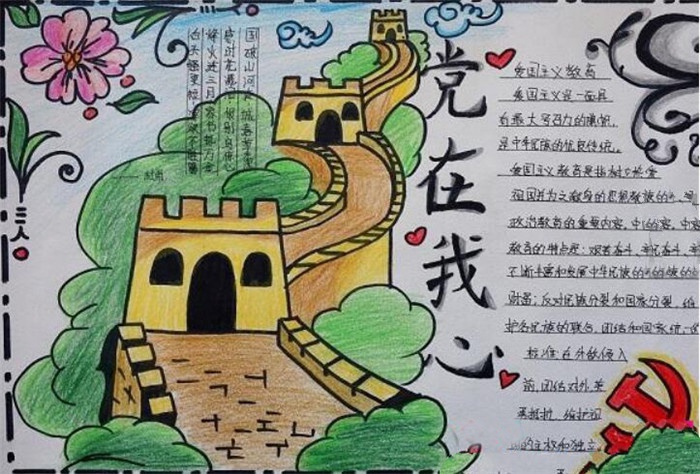 国破山河在 城春草木深
感时花溅泪 恨别鸟惊心
烽火连三月 家书抵万金
白头搔更短 浑欲不胜簪
——杜甫
党在我心
爱国主义教育
爱国主义是一面具
有最大号召力的旗帜,
是中华民族的优良传统。
爱国主义教育是指树立热爱
祖国并为之献身的思想教
政治教育的重要内容。中
教育的特点是:艰苦奋斗、
不断丰富和发展中华民族的
财富;反对民族分裂和国家分裂,
护各民族的联合、团结和国家统一
在外敌侵入
前,团结对外
维护祖
的主权和独立。